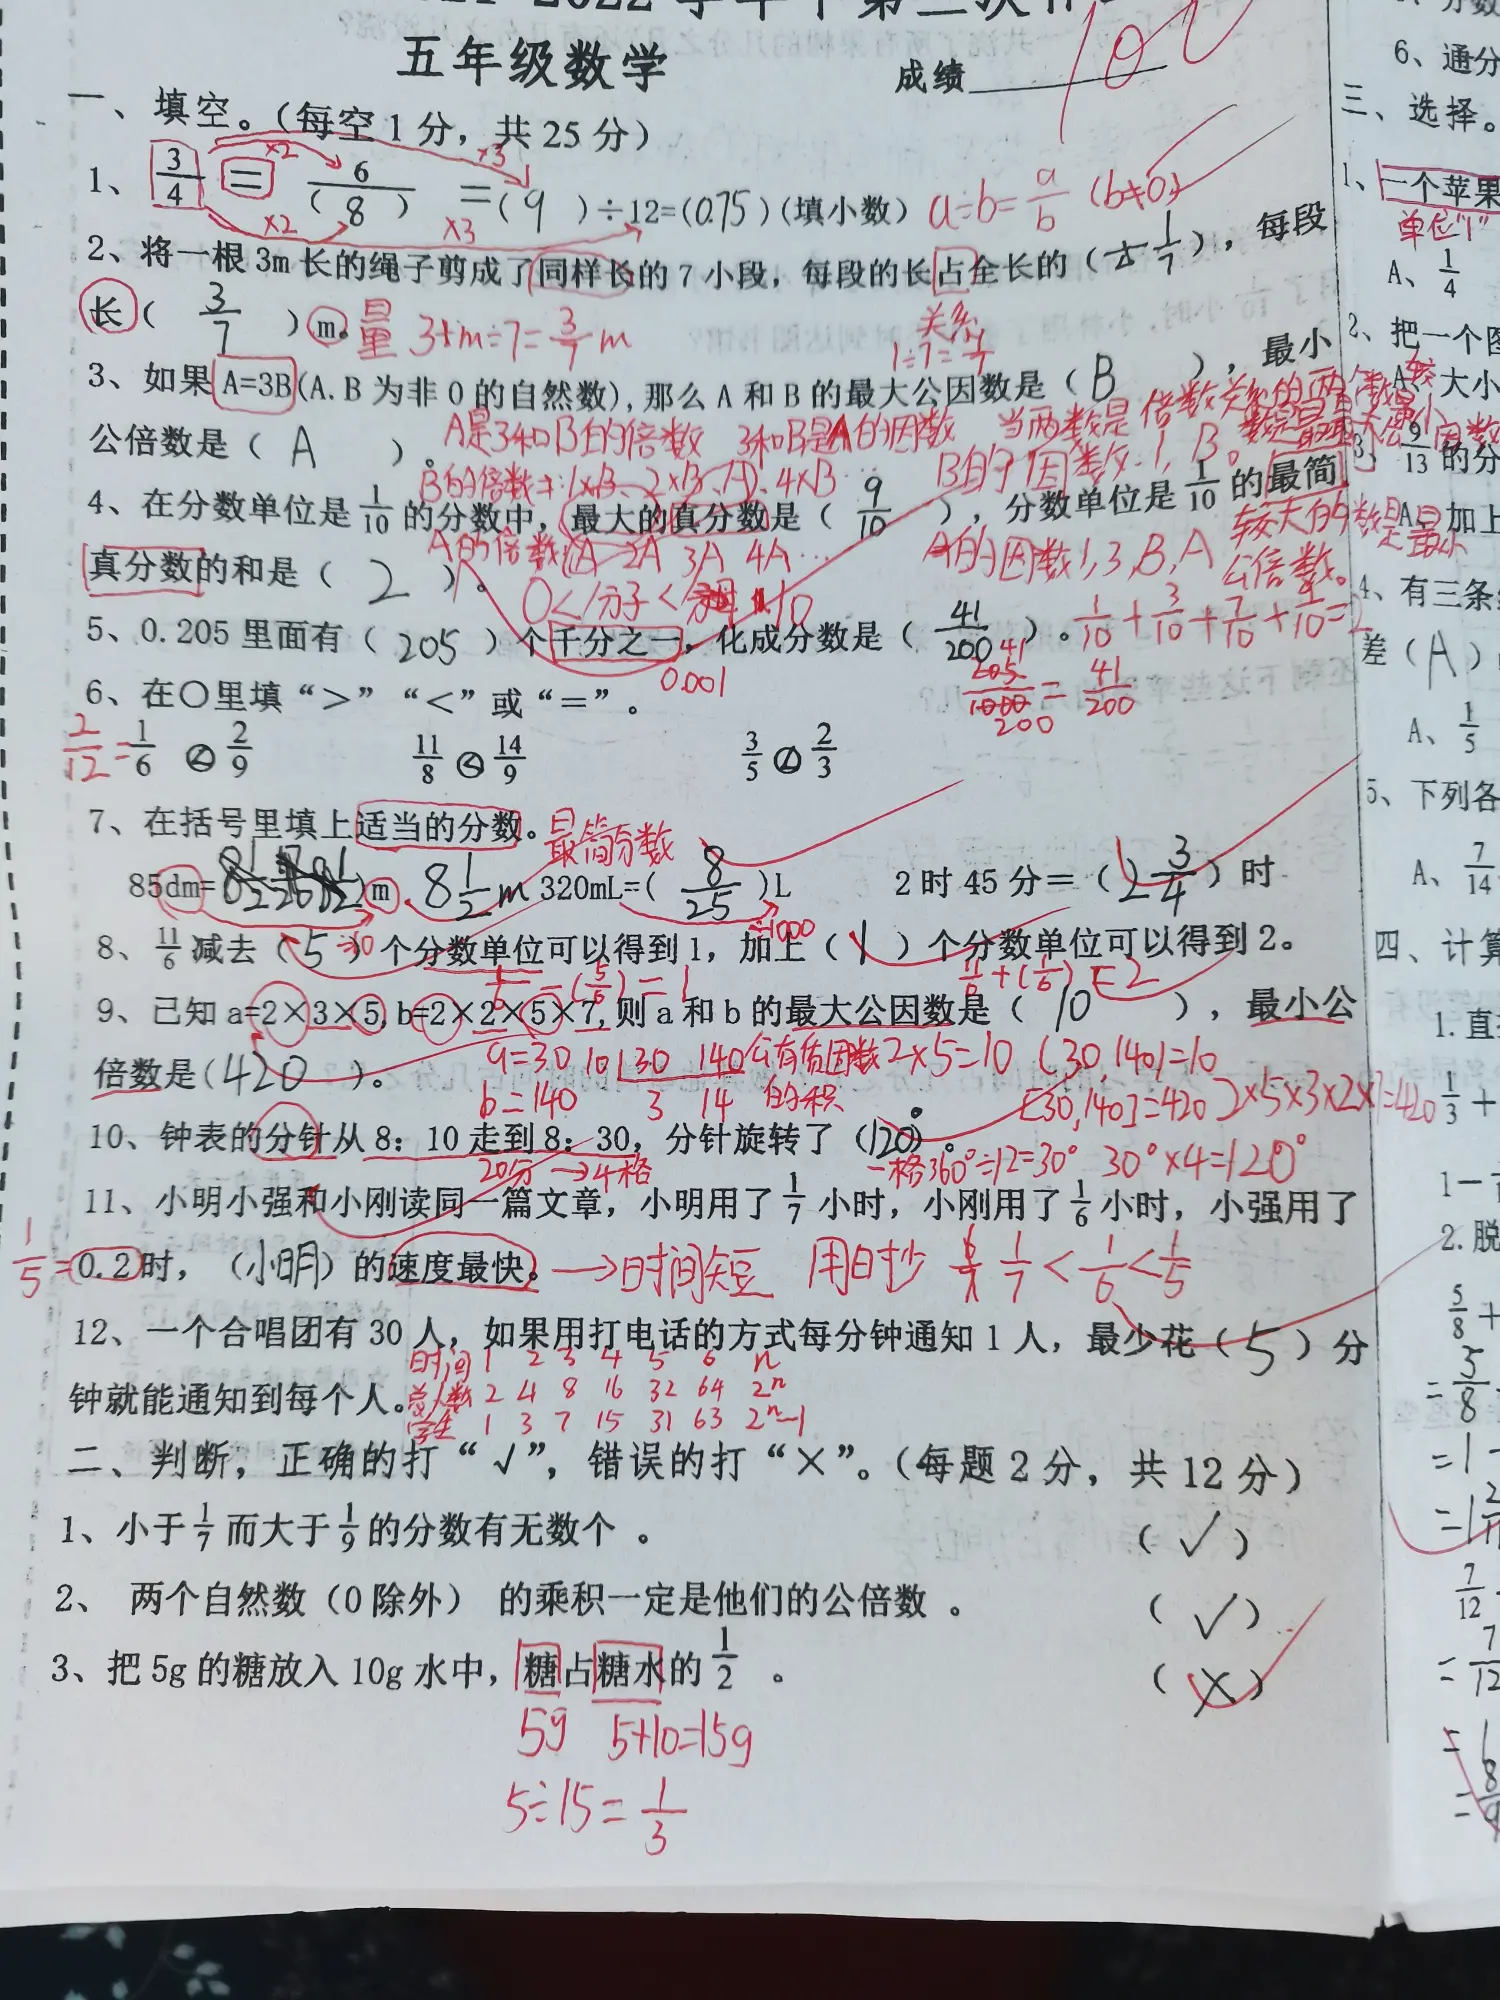 五年级数学 成绩 100
一、填空。(每空1分，共25分)
1、3/4 = 6/(8) =(9)÷12=(0.75)(填小数) a÷b=a/b (b≠0)
×2 ×3
×2 ×3
2、将一根3m长的绳子剪成了同样长的7小段，每段的长占全长的(1/7)，每段
长(3/7)m。量 3m÷7=3/7m 关系 1÷7=1/7
3、如果A=3B(A.B为非0的自然数),那么A和B的最大公因数是(B)，最小
公倍数是(A)。A是3和B的倍数 3和B是A的因数 当两数是倍数关系的两个数
B的倍数：1×B、2×B、A、4×B B的因数：1,B。
4、在分数单位是1/10的分数中，最大的真分数是(9/10)，分数单位是1/10的最简
真分数的和是(2)。A的倍数 A 2A 3A 4A… A的因数1,3,B,A 较大的数是最小公倍数。
0<分子<分母 10
5、0.205里面有(205)个千分之一，化成分数是(41/200)。1/10+3/10+7/10+9/10=2
0.001 205/1000 41 200 = 41/200
6、在○里填“>”“<”或“=”。
2/12=1/6 < 2/9 11/8 < 14/9 3/5 < 2/3
7、在括号里填上适当的分数。最简分数
85dm= m. 8 1/2 m 320mL=(8/25)L 2时45分=(2 3/4)时
÷10 ÷1000
8、11/6减去(5)个分数单位可以得到1，加上(1)个分数单位可以得到2。
11/6-(5/6)=1 11/6+(1/6)=2
9、已知a=2×3×5,b=2×2×5×7,则a和b的最大公因数是(10)，最小公
倍数是(420)。a=30 10 30 140 公有质因数 2×5=10 (30,140)=10
b=140 3 14 的积 [30,140]=420 2×5×3×2×7=420
10、钟表的分针从8：10走到8：30，分针旋转了(120)°。
20分→4格 一格360°÷12=30° 30°×4=120°
11、小明小强和小刚读同一篇文章，小明用了1/7小时，小刚用了1/6小时，小强用了
1/5=0.2时，(小明)的速度最快。→时间短 用时少 1/7<1/6<1/5
12、一个合唱团有30人，如果用打电话的方式每分钟通知1人，最少花(5)分
时间 1 2 3 4 5 6 n
钟就能通知到每个人。总人数 2 4 8 16 32 64 2ⁿ
学生 1 3 7 15 31 63 2ⁿ-1
二、判断，正确的打“√”，错误的打“×”。(每题2分，共12分)
1、小于1/7而大于1/9的分数有无数个。 (√)
2、两个自然数(0除外)的乘积一定是他们的公倍数。 (√)
3、把5g的糖放入10g水中，糖占糖水的1/2。 (×)
5g 5+10=15g
5÷15=1/3
6、通分
三、选择。
1、一个苹果
单位“1”
A、1/4
2、把一个图
A、大小
9/13的分
A、加上
4、有三条
差(A)
A、1/5
5、下列各
A、7/14
四、计算
1.直
1/3+
1-
2.脱
5/8+
=1-
7/12